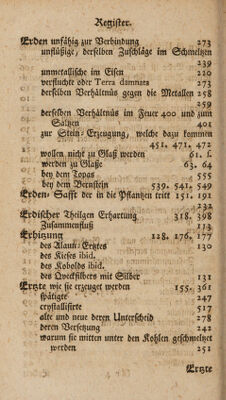 Register.
Erden unfähig zur Verbindung 273
unflüßige, derselben Zuschläge im Schmeltzen
239
unmetallische im Eisen 220
verfluchte oder Terra damnata 273
derselben Verhältnüs gegen die Metallen 258
259
derselben Verhältnüs im Feuer 400 und zum
Saltzen 401
zur Stein-Erzeugung, welche dazu kommen
451. 471. 472
wollen nicht zu Glaß werden 61. s.
werden zu Glaße 63. 64
bey dem Topas 555
bey dem Bernstein 539. 541. 549
Erden-Safft der in die Pflantzen tritt 151. 191
232
Erdischer Theilgen Erhartung 318. 398
Zusammenfluß 313
Erhizung 128. 176. 177
des Alaun-Ertzes 130
des Kieses ibid.
des Kobolds ibid.
des Quecksilbers mit Silber 131
Ertzte wie sie erzeuget werden 155. 361
spätigte 247
crystallisirte 517
alte und neue deren Unterscheid 278
deren Versetzung 242
warum sie mitten unter den Kohlen geschmeltzet
werden 251
Ertzte